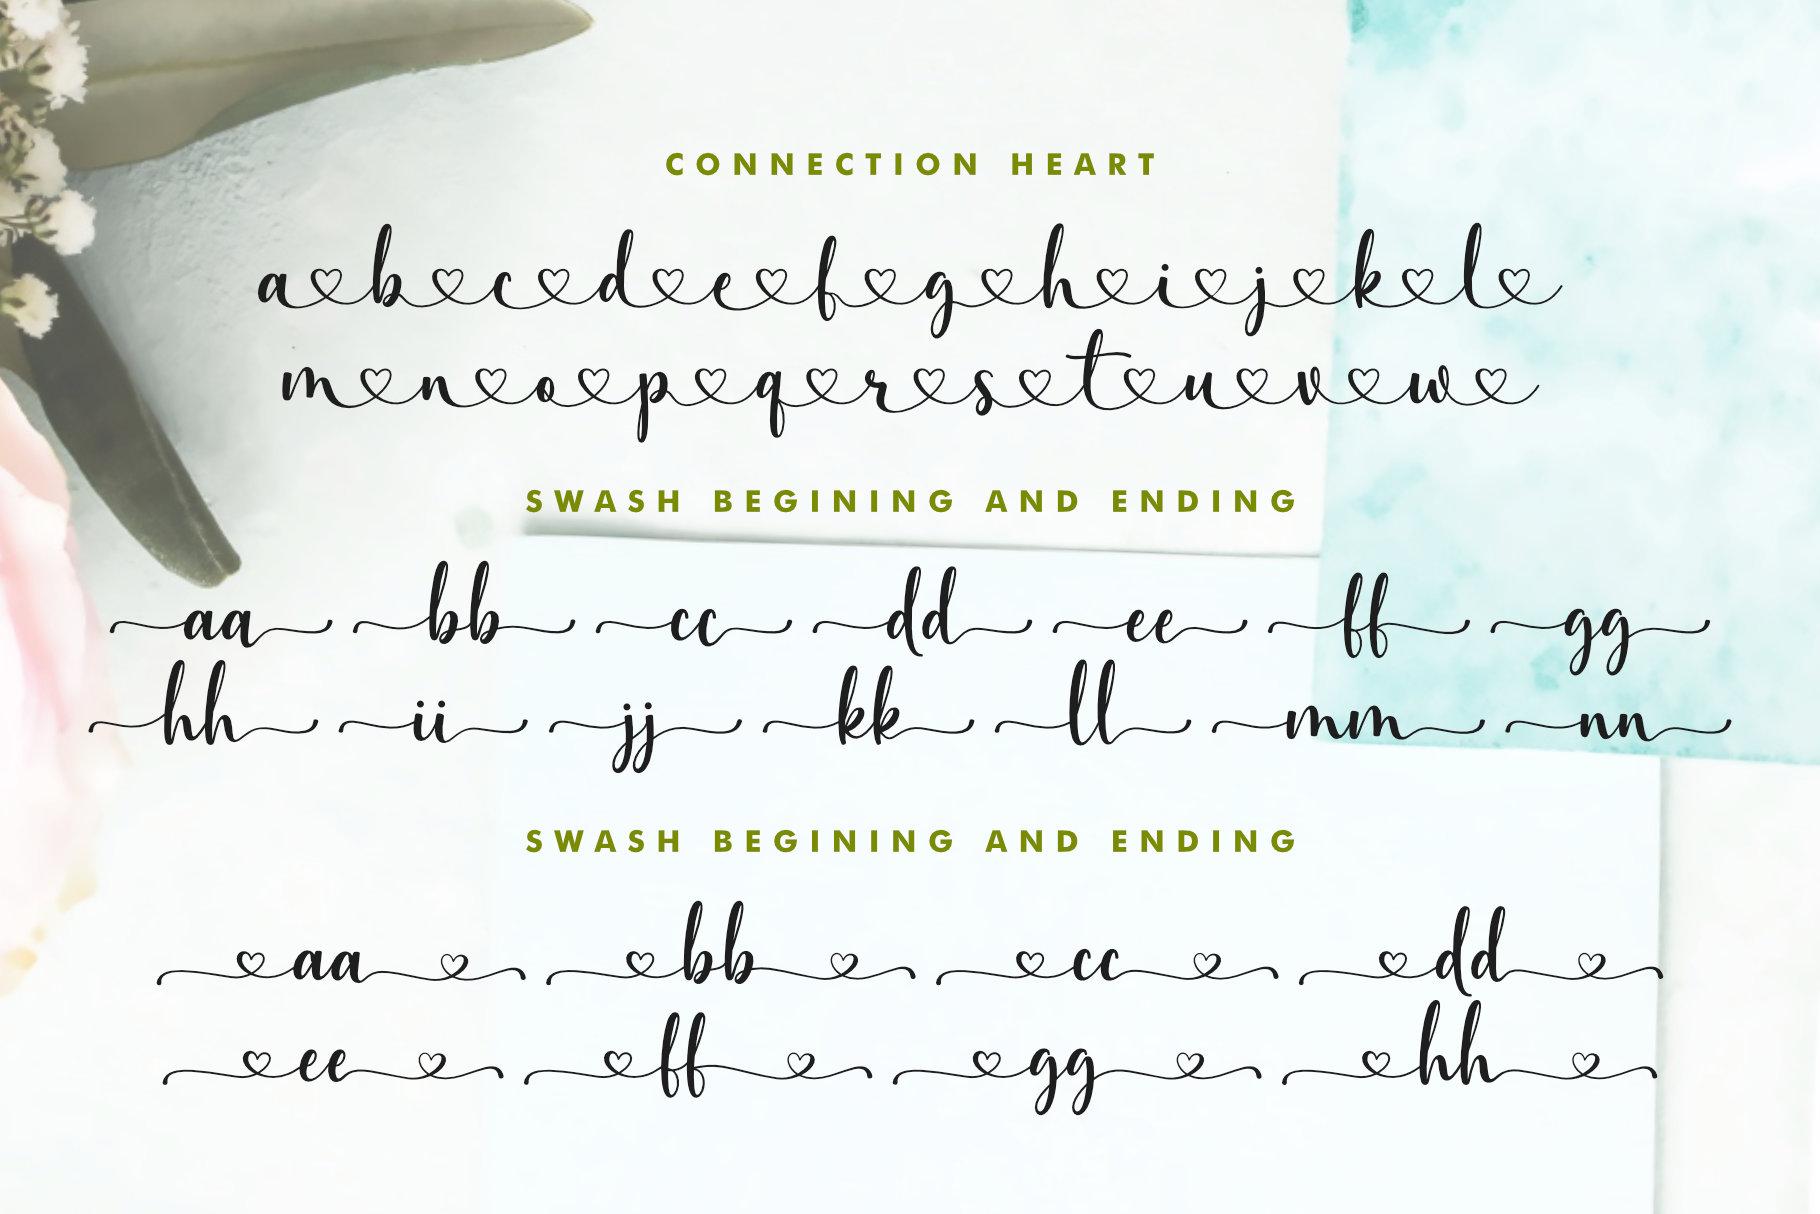 CONNECTION HEART
a♡b♡c♡d♡e♡f♡g♡h♡i♡j♡k♡l♡
m♡n♡o♡p♡q♡r♡s♡t♡u♡v♡w♡
SWASH BEGINING AND ENDING
aa bb cc dd ee ff gg
hh ii jj kk ll mm nn
SWASH BEGINING AND ENDING
♡aa♡ ♡bb♡ ♡cc♡ ♡dd♡
♡ee♡ ♡ff♡ ♡gg♡ ♡hh♡